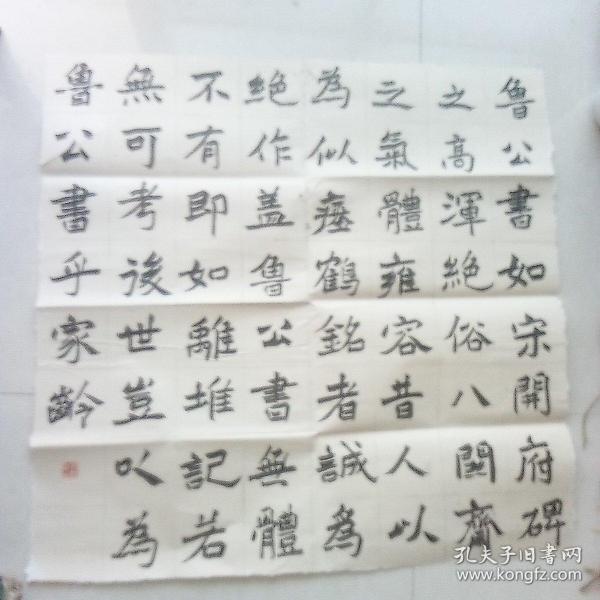 魯公書如宋開府碑
之高渾絶俗八関齋
之氣體雍容昔人以
為似瘞鶴銘者誠為
絶作蓋魯公書無體
不有即如離堆記若
無可考後世豈以為
魯公書乎家齡
孔夫子旧書网
www.kongfz.com